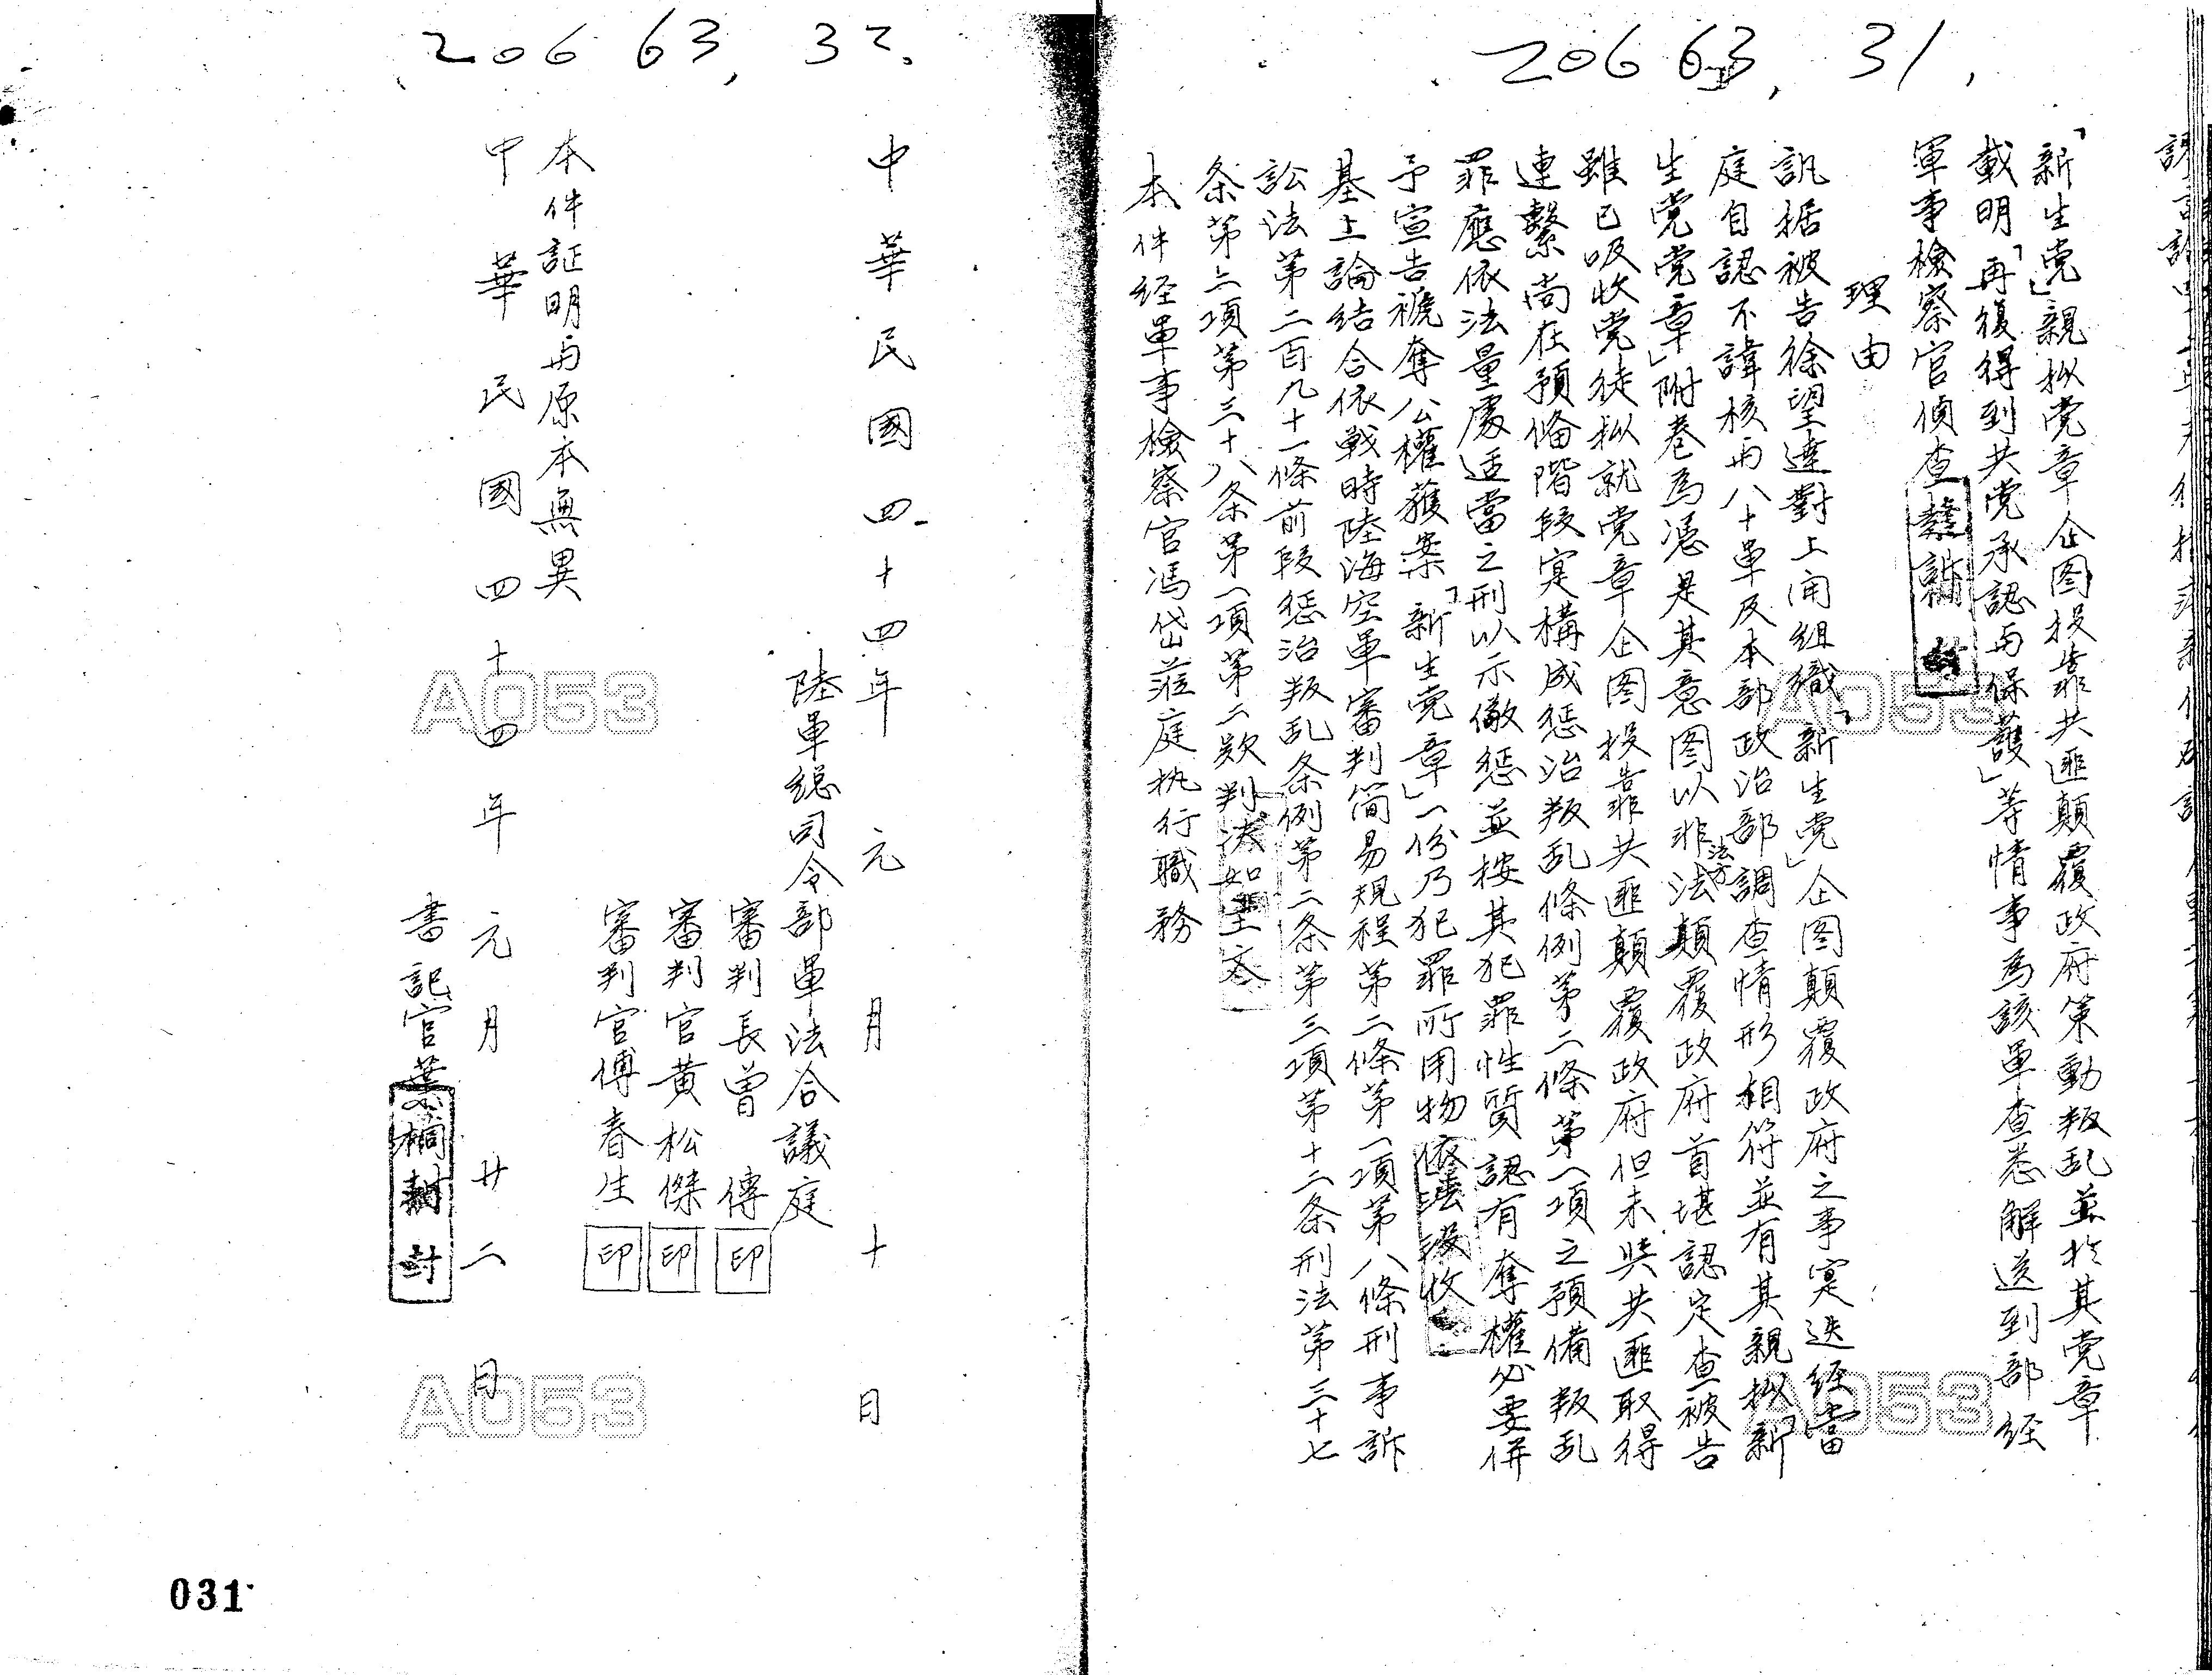 206 63, 31,
「新生党」親拟党章企图投靠共匪顛覆政府策動叛乱並於其党章
載明「再復得到共党承認与保護」等情事為該軍查悉解送到部経
軍事檢察官偵查
理由
訊据被告徐望達對上開組織「新生党」企图顛覆政府之事寔迭経當
庭自認不諱核与八十軍及本部政治部調查情形相符並有其親拟「新
生党党章」附卷為憑是其意图以非法方法顛覆政府首堪認定查被告
雖已吸收党徒拟就党章企图投靠共匪顛覆政府但未與共匪取得
連繫尚在預俻階段寔構成惩治叛乱條例第二條第一項之預備叛乱
罪應依法量處适當之刑以示儆惩並按其犯罪性質認有奪權必要併
予宣告褫奪公權獲案「新生党章」一份乃犯罪所用物依法没收
基上論結合依戰時陸海空軍審判简易規程第二條第一項第八條刑事訴
訟法第二百九十一條前段惩治叛乱条例第二条第三項第十二条刑法第三十七
条第二項第三十八条第一項第二款判決如主文
本件経軍事檢察官馮岱蒞庭执行職務
206 63, 32.
中華民國四十四年元月十日
陸軍総司令部軍法合議庭
審判長曾傳 印
審判官黃松傑 印
審判官傅春生 印
本件証明与原本無異
中華民國四十四年元月廿二日
書記官葉桐封
A053
A053
A053
A053
031